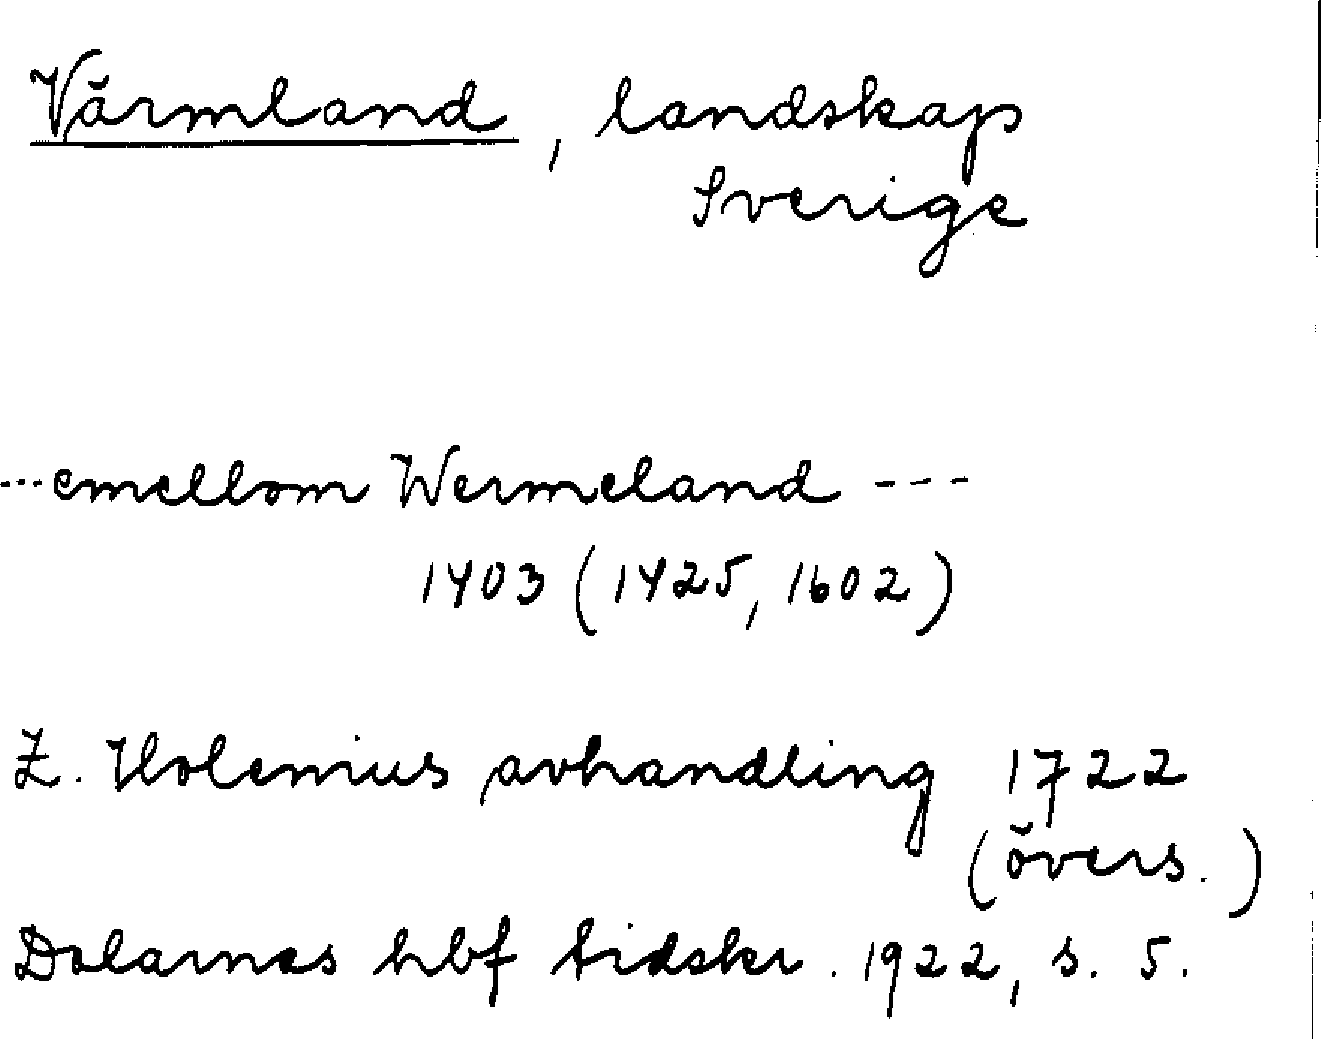 Värmland, landskap
Sverige
...emellom Wermeland ---
1403 (1425, 1602)
Z. Holenius avhandling 1722
(övers.)
Dalarnas hbf tidskr. 1922, s. 5.